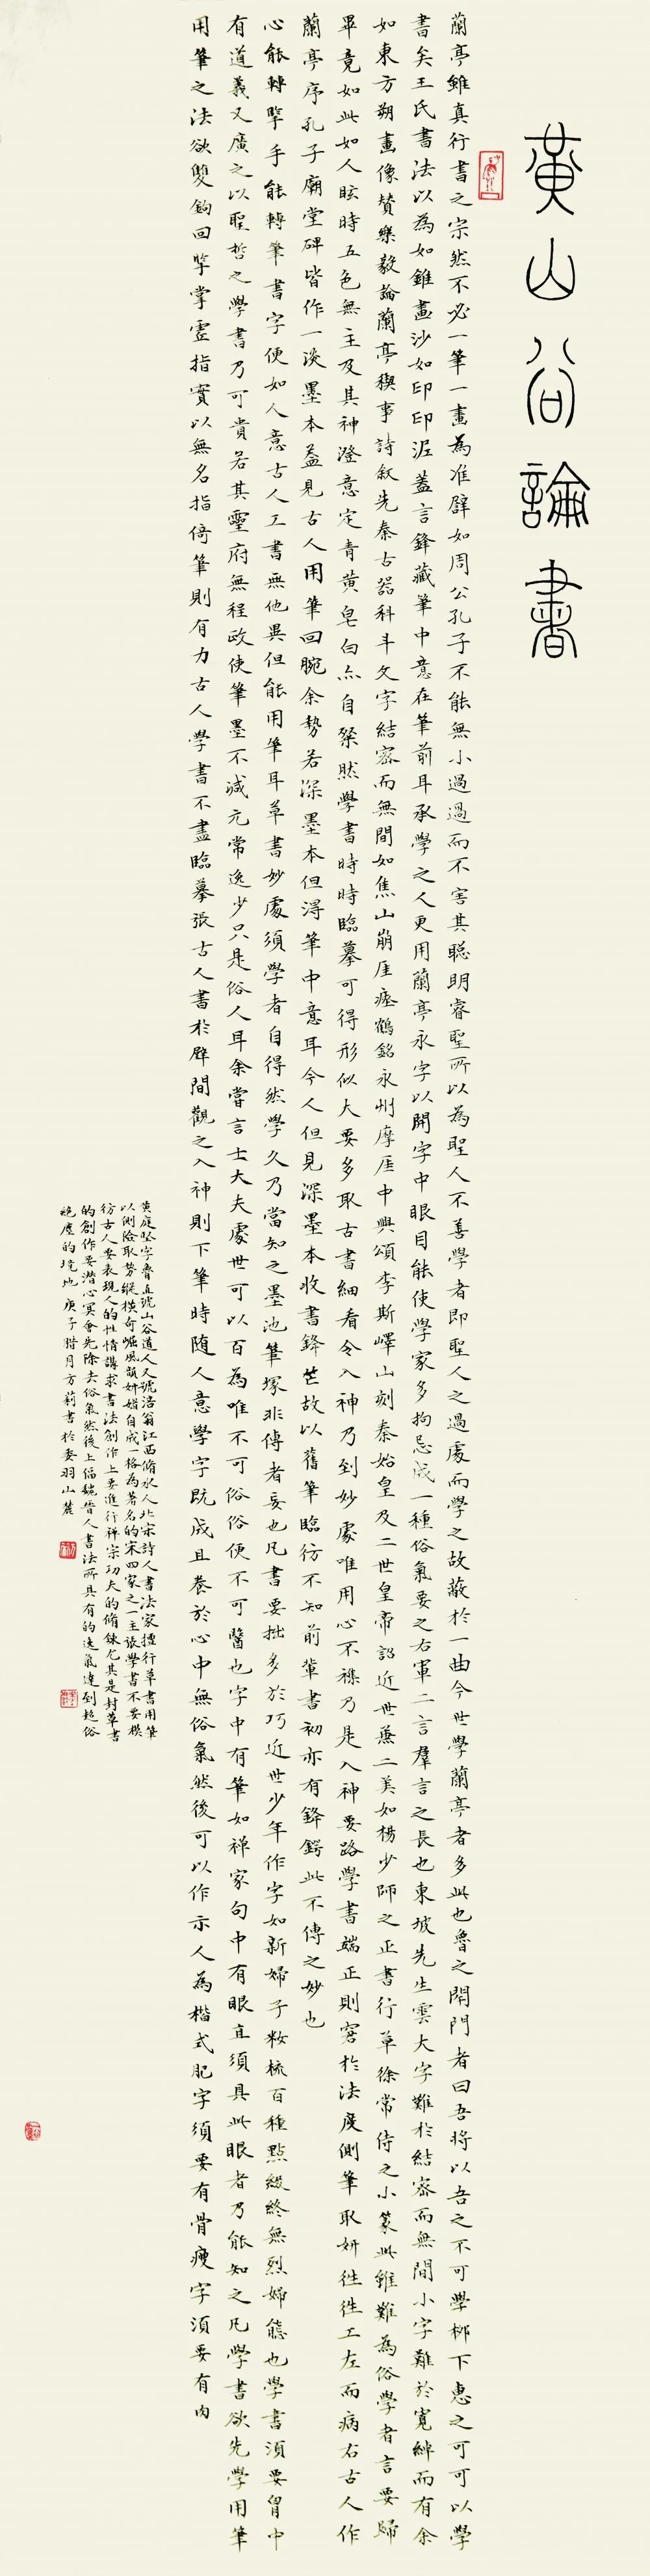 黄山谷論書
蘭亭雖真行書之宗然不必一筆一畫為准辟如周公孔子不能無小過過而不害其聰明睿聖所以為聖人不善學者即聖人之過處而學之故蔽於一曲今世學蘭亭者多此也魯之閉門者曰吾將以吾之不可學柳下惠之可可以學
書矣王氏書法以為如錐畫沙如印印泥蓋言鋒藏筆中意在筆前耳承學之人更用蘭亭永字以開字中眼目能使學家多拘忌成一種俗氣要之右軍二言群言之長也東坡先生雲大字難於結密而無間小字難於寬綽而有余
如東方朔畫像贊樂毅論蘭亭稧事詩叙先秦古器科斗文字結密而無間如焦山崩厓瘞鶴銘永州摩厓中興頌李斯嶧山刻秦始皇及二世皇帝詔近世兼二美如楊少師之正書行草徐常侍之小篆此雖難為俗學者言要歸
畢竟如此如人眩時五色無主及其神澄意定青黄皂白亦自粲然學書時時臨摹可得形似大要多取古書細看令入神乃到妙處唯用心不襍乃是入神要路學書端正則窘於法度側筆取妍往往工左而病右古人作
蘭亭序孔子廟堂碑皆作一淡墨本蓋見古人用筆回腕余勢若深墨本但得筆中意耳今人但見深墨本收書鋒芒故以舊筆臨仿不知前輩書初亦有鋒鍔此不傳之妙也
心能轉擥手能轉筆書字便如人意古人工書無他異但能用筆耳草書妙處須學者自得然學久乃當知之墨池筆塚非傳者妄也凡書要拙多於巧近世少年作字如新婦子妝梳百種點綴終無烈婦態也學書須要胷中
有道義又廣之以聖哲之學書乃可貴若其靈府無程政使筆墨不減元常逸少只是俗人耳余嘗言士大夫處世可以百為唯不可俗俗便不可醫也字中有筆如禅家句中有眼直須具此眼者乃能知之凡學書欲先學用筆
用筆之法欲雙鉤回擥掌虛指實以無名指倚筆則有力古人學書不盡臨摹張古人書於壁間觀之入神則下筆時随人意學字既成且養於心中無俗氣然後可以作示人為楷式肥字須要有骨瘦字須要有肉
黄庭坚字魯直號山谷道人又號涪翁江西脩水人北宋詩人書法家擅行草書用筆
以側險取勢縱横奇崛風韻妍媚自成一格為著名的宋四家之一主張學書不要模
仿古人要表現人的性情講求書法創作上要進行禅宗功夫的脩鍊尤其是對草書
的創作要潛心冥會先除去俗氣然後上偪魏晉人書法所具有的逸氣達到超俗
絶塵的境地庚子腊月方莉書於委羽山麓